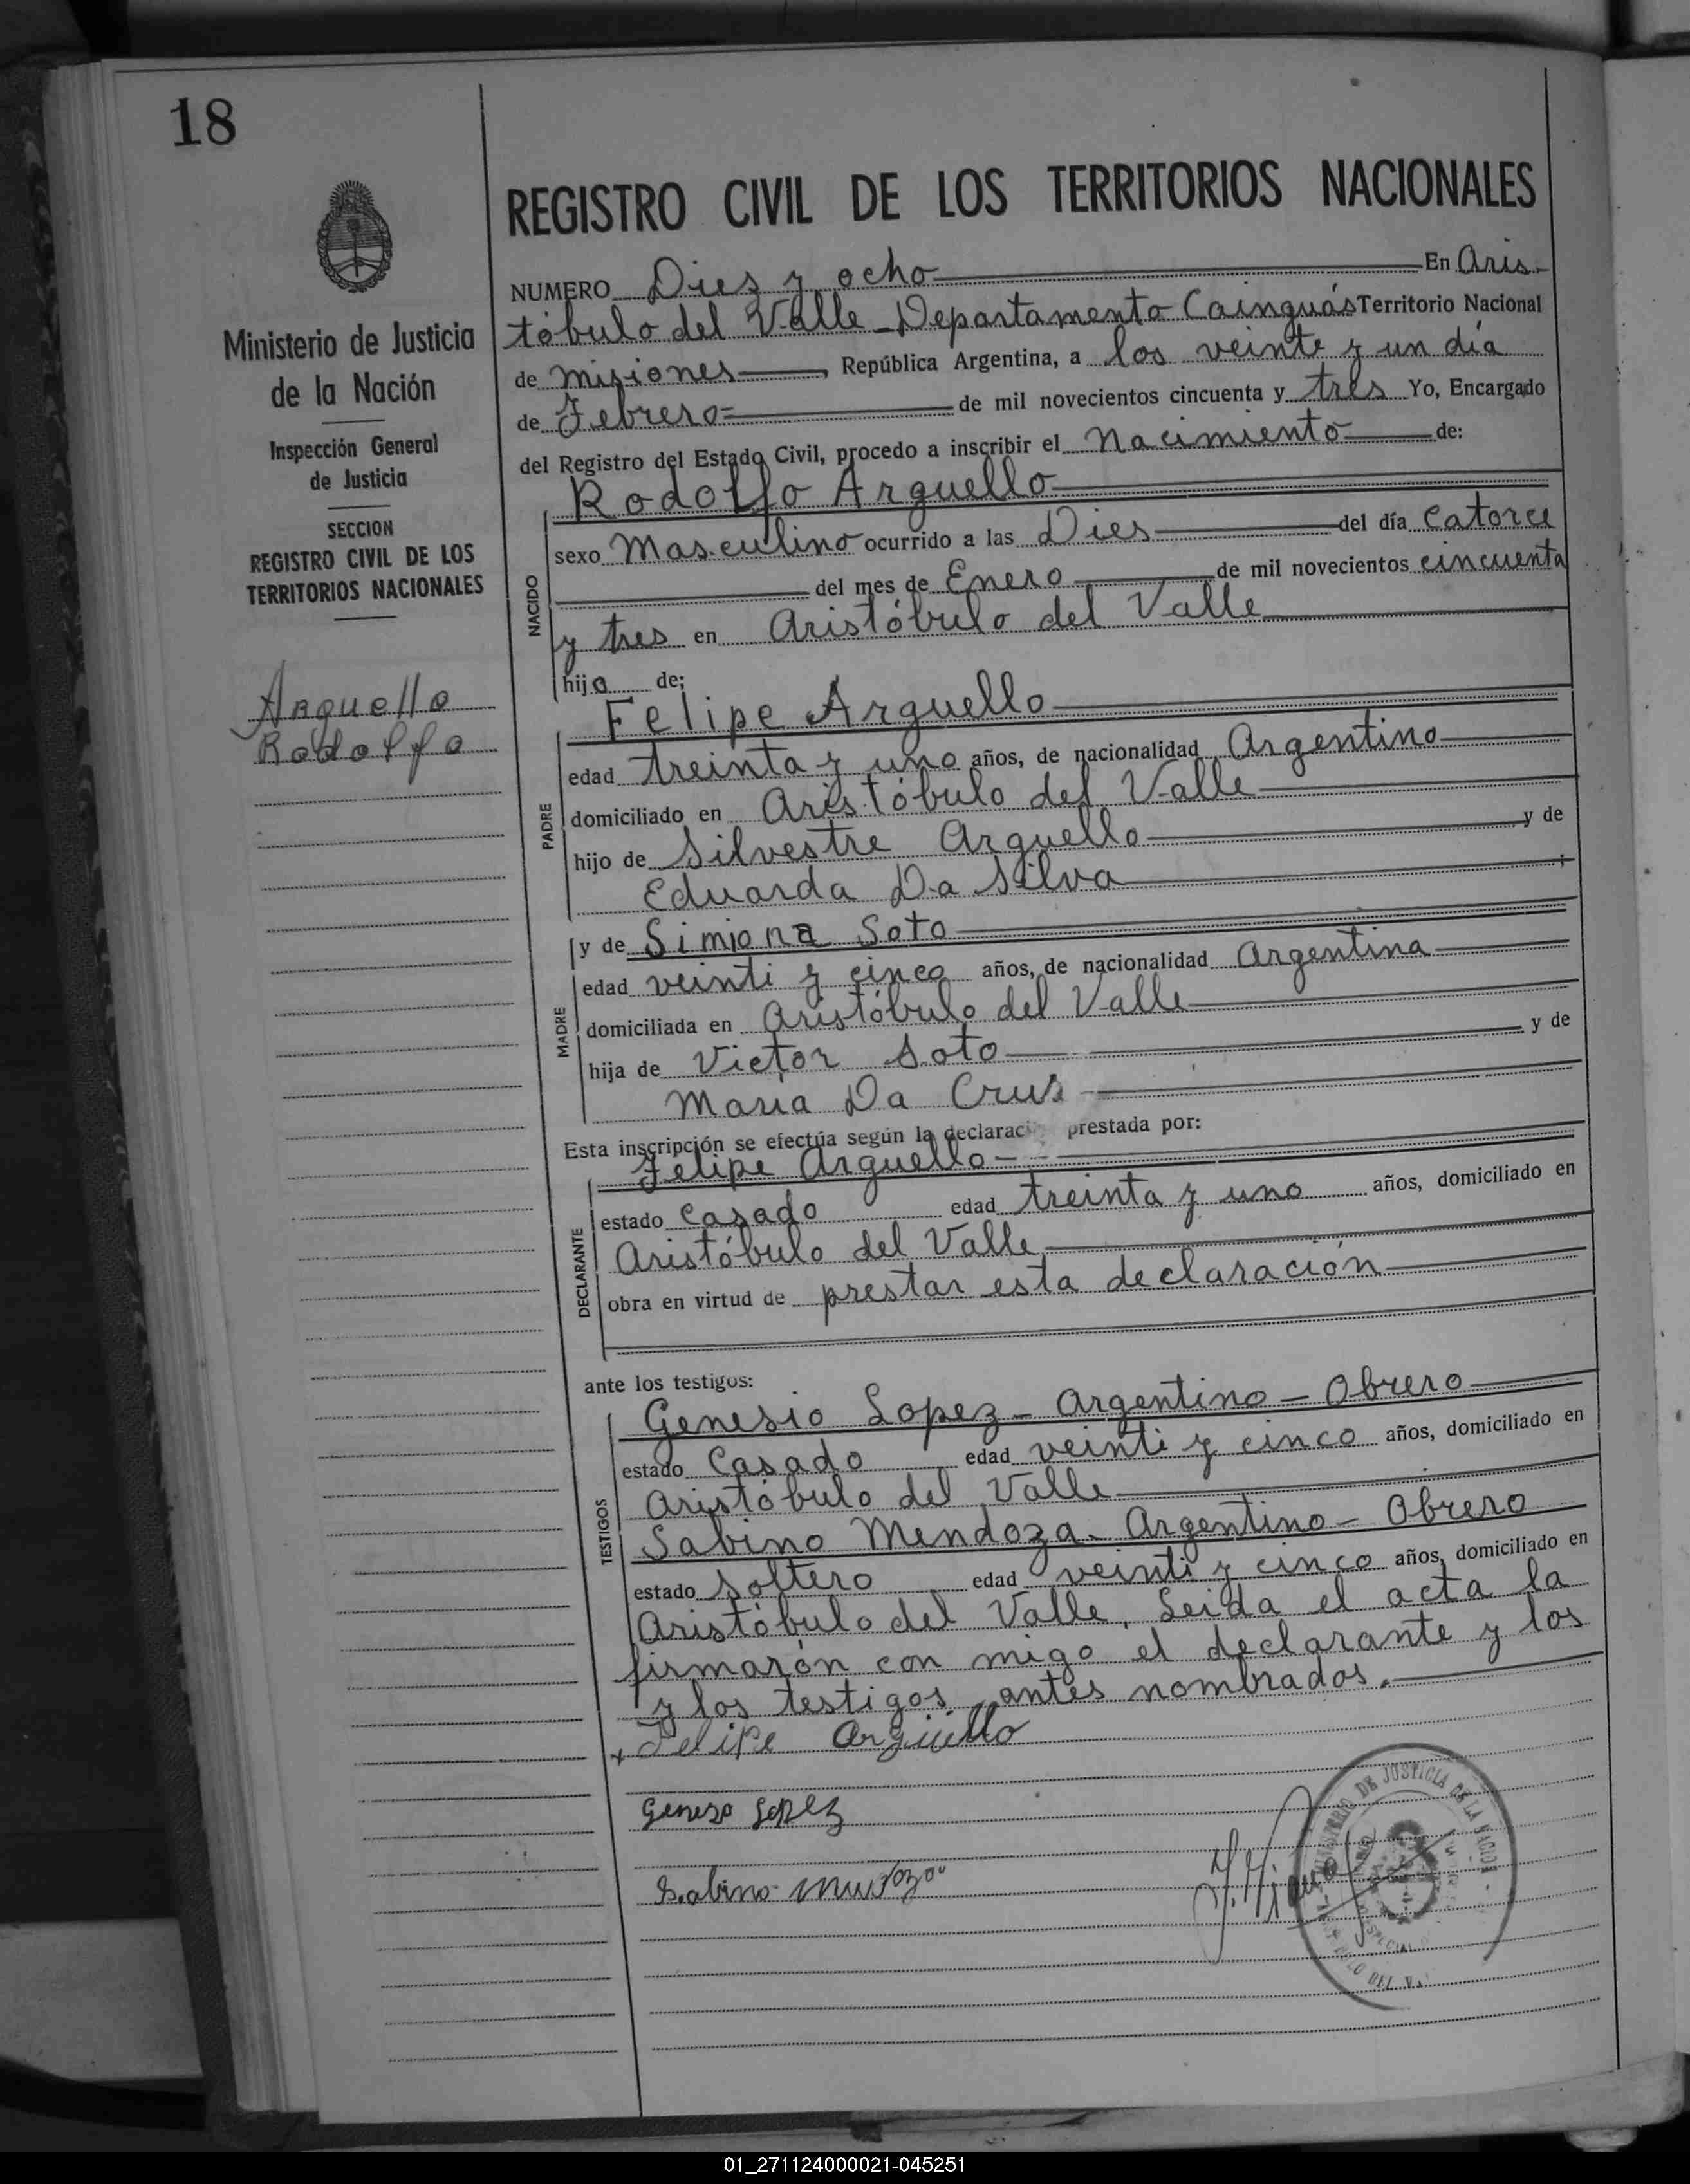 18
Ministerio de Justicia
de la Nación
Inspección General
de Justicia
SECCION
REGISTRO CIVIL DE LOS
TERRITORIOS NACIONALES
Arguello
Rodolfo
REGISTRO CIVIL DE LOS TERRITORIOS NACIONALES
NUMERO Dies y ocho En Aris-
tóbulo del Valle - Departamento Cainguás Territorio Nacional
de Misiones, República Argentina, a los veinte y un día
de Febrero= de mil novecientos cincuenta y tres Yo, Encargado
del Registro del Estado Civil, procedo a inscribir el Nacimiento de:
Rodolfo Arguello
NACIDO
sexo Masculino ocurrido a las Dies del día catorce
del mes de Enero de mil novecientos cincuenta
y tres en Aristóbulo del Valle
hijo de;
Felipe Arguello
PADRE
edad treinta y uno años, de nacionalidad Argentino
domiciliado en Aristóbulo del Valle
hijo de Silvestre Arguello y de
Eduarda Da Silva ;
y de Simiona Soto
MADRE
edad veinti y cinco años, de nacionalidad Argentina
domiciliada en Aristóbulo del Valle
hija de Victor Soto y de
Maria Da Crus
Esta inscripción se efectúa según la declaraci prestada por:
Felipe Arguello
DECLARANTE
estado Casado edad treinta y uno años, domiciliado en
Aristóbulo del Valle
obra en virtud de prestar esta declaración
ante los testigos:
Genesio Lopez - Argentino - Obrero
TESTIGOS
estado Casado edad veinti y cinco años, domiciliado en
Aristóbulo del Valle
Sabino Mendoza - Argentino - Obrero
estado Soltero edad veinti y cinco años, domiciliado en
Aristóbulo del Valle, Leida el acta la
firmarón con migo el declarante y los
y los testigos antes nombrados.
x Felipe Argüello
Genezo Lopez
Sabino
MINISTERIO DE JUSTICIA DE LA NACION
01_271124000021-045251